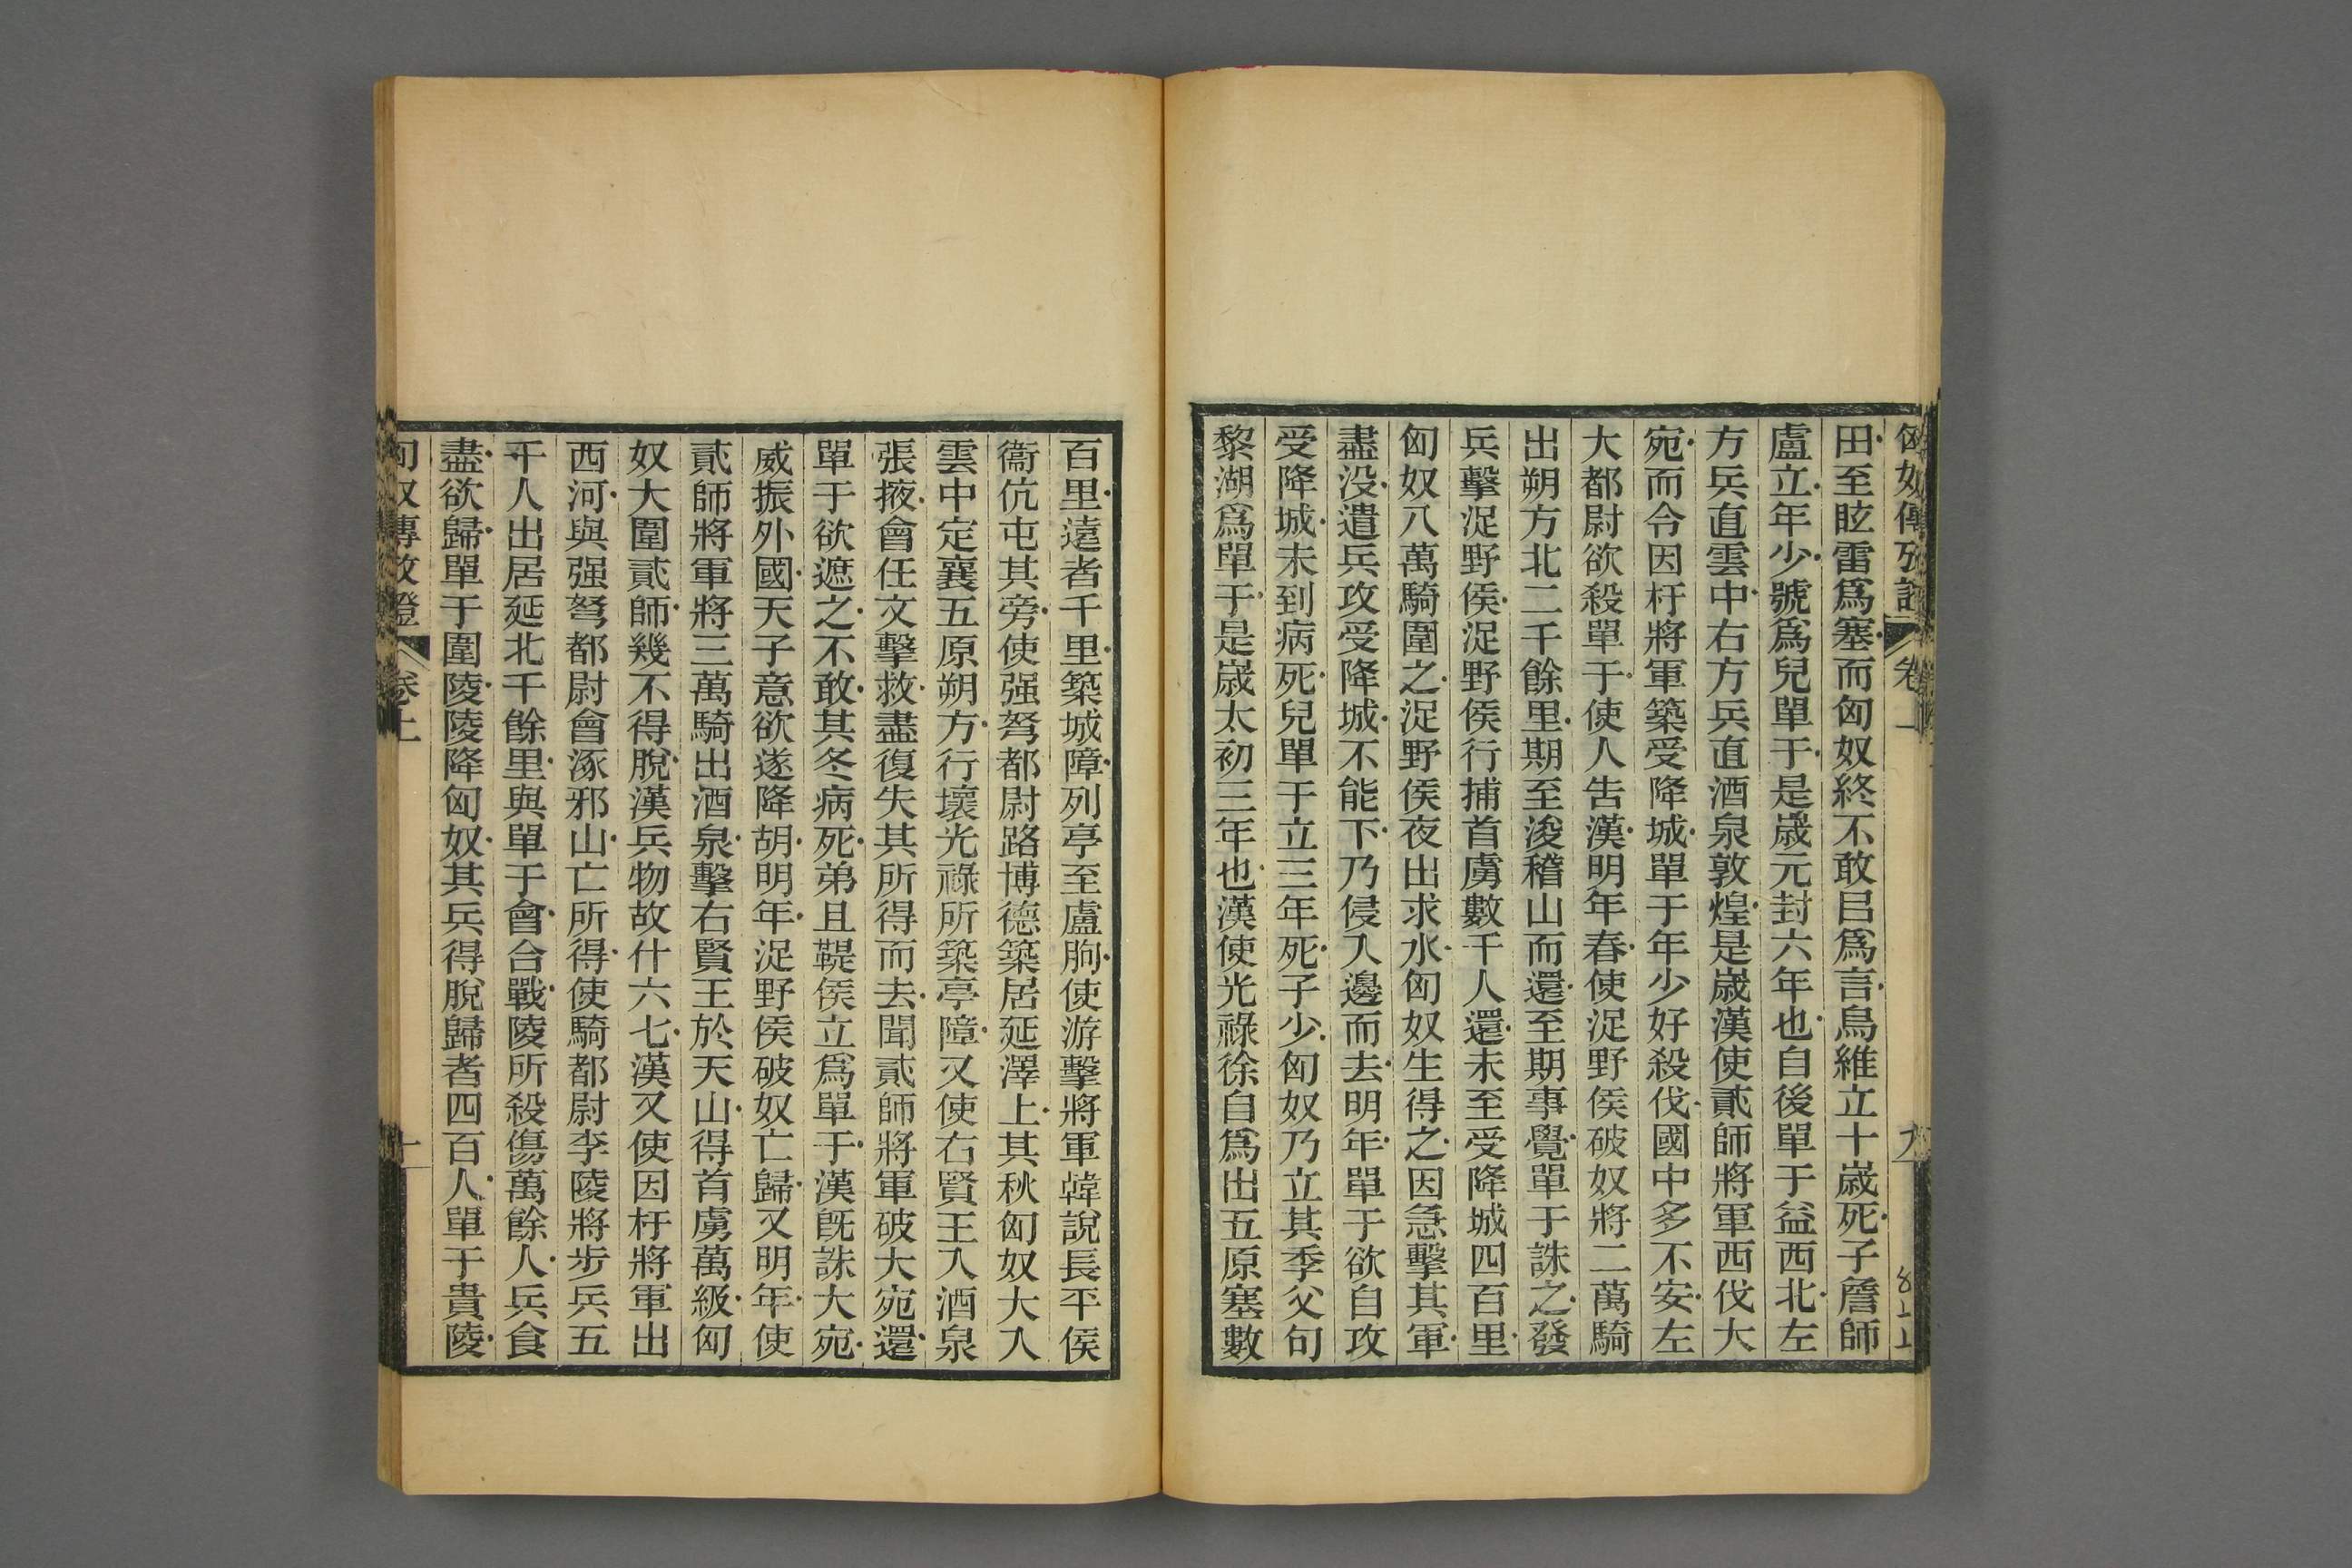 匈奴傳攷證 卷上 九
田至眩雷爲塞而匈奴終不敢㠯爲言烏維立十歲死子詹師
盧立年少號爲兒單于是歲元封六年也自後單于益西北左
方兵直雲中右方兵直酒泉敦煌是歲漢使貳師將軍西伐大
宛而令因杅將軍築受降城單于年少好殺伐國中多不安左
大都尉欲殺單于使人告漢明年春使浞野侯破奴將二萬騎
出朔方北二千餘里期至浚稽山而還至期事覺單于誅之發
兵擊浞野侯浞野侯行捕首虜數千人還未至受降城四百里
匈奴八萬騎圍之浞野侯夜出求水匈奴生得之因急擊其軍
盡没遣兵攻受降城不能下乃侵入邊而去明年單于欲自攻
受降城未到病死兒單于立三年死子少匈奴乃立其季父句
黎湖爲單于是歲太初三年也漢使光祿徐自爲出五原塞數
百里遠者千里築城障列亭至盧朐使游擊將軍韓說長平侯
衞伉屯其旁使强弩都尉路博德築居延澤上其秋匈奴大入
雲中定襄五原朔方行壞光祿所築亭障又使右賢王入酒泉
張掖會任文擊救盡復失其所得而去聞貳師將軍破大宛還
單于欲遮之不敢其冬病死弟且鞮侯立爲單于漢旣誅大宛
威振外國天子意欲遂降胡明年浞野侯破奴亡歸又明年使
貳師將軍將三萬騎出酒泉擊右賢王於天山得首虜萬級匈
奴大圍貳師幾不得脫漢兵物故什六七漢又使因杅將軍出
西河與强弩都尉會涿邪山亡所得使騎都尉李陵將步兵五
千人出居延北千餘里與單于會合戰陵所殺傷萬餘人兵食
盡欲歸單于圍陵陵降匈奴其兵得脫歸者四百人單于貴陵
匈奴傳攷證 卷上 十